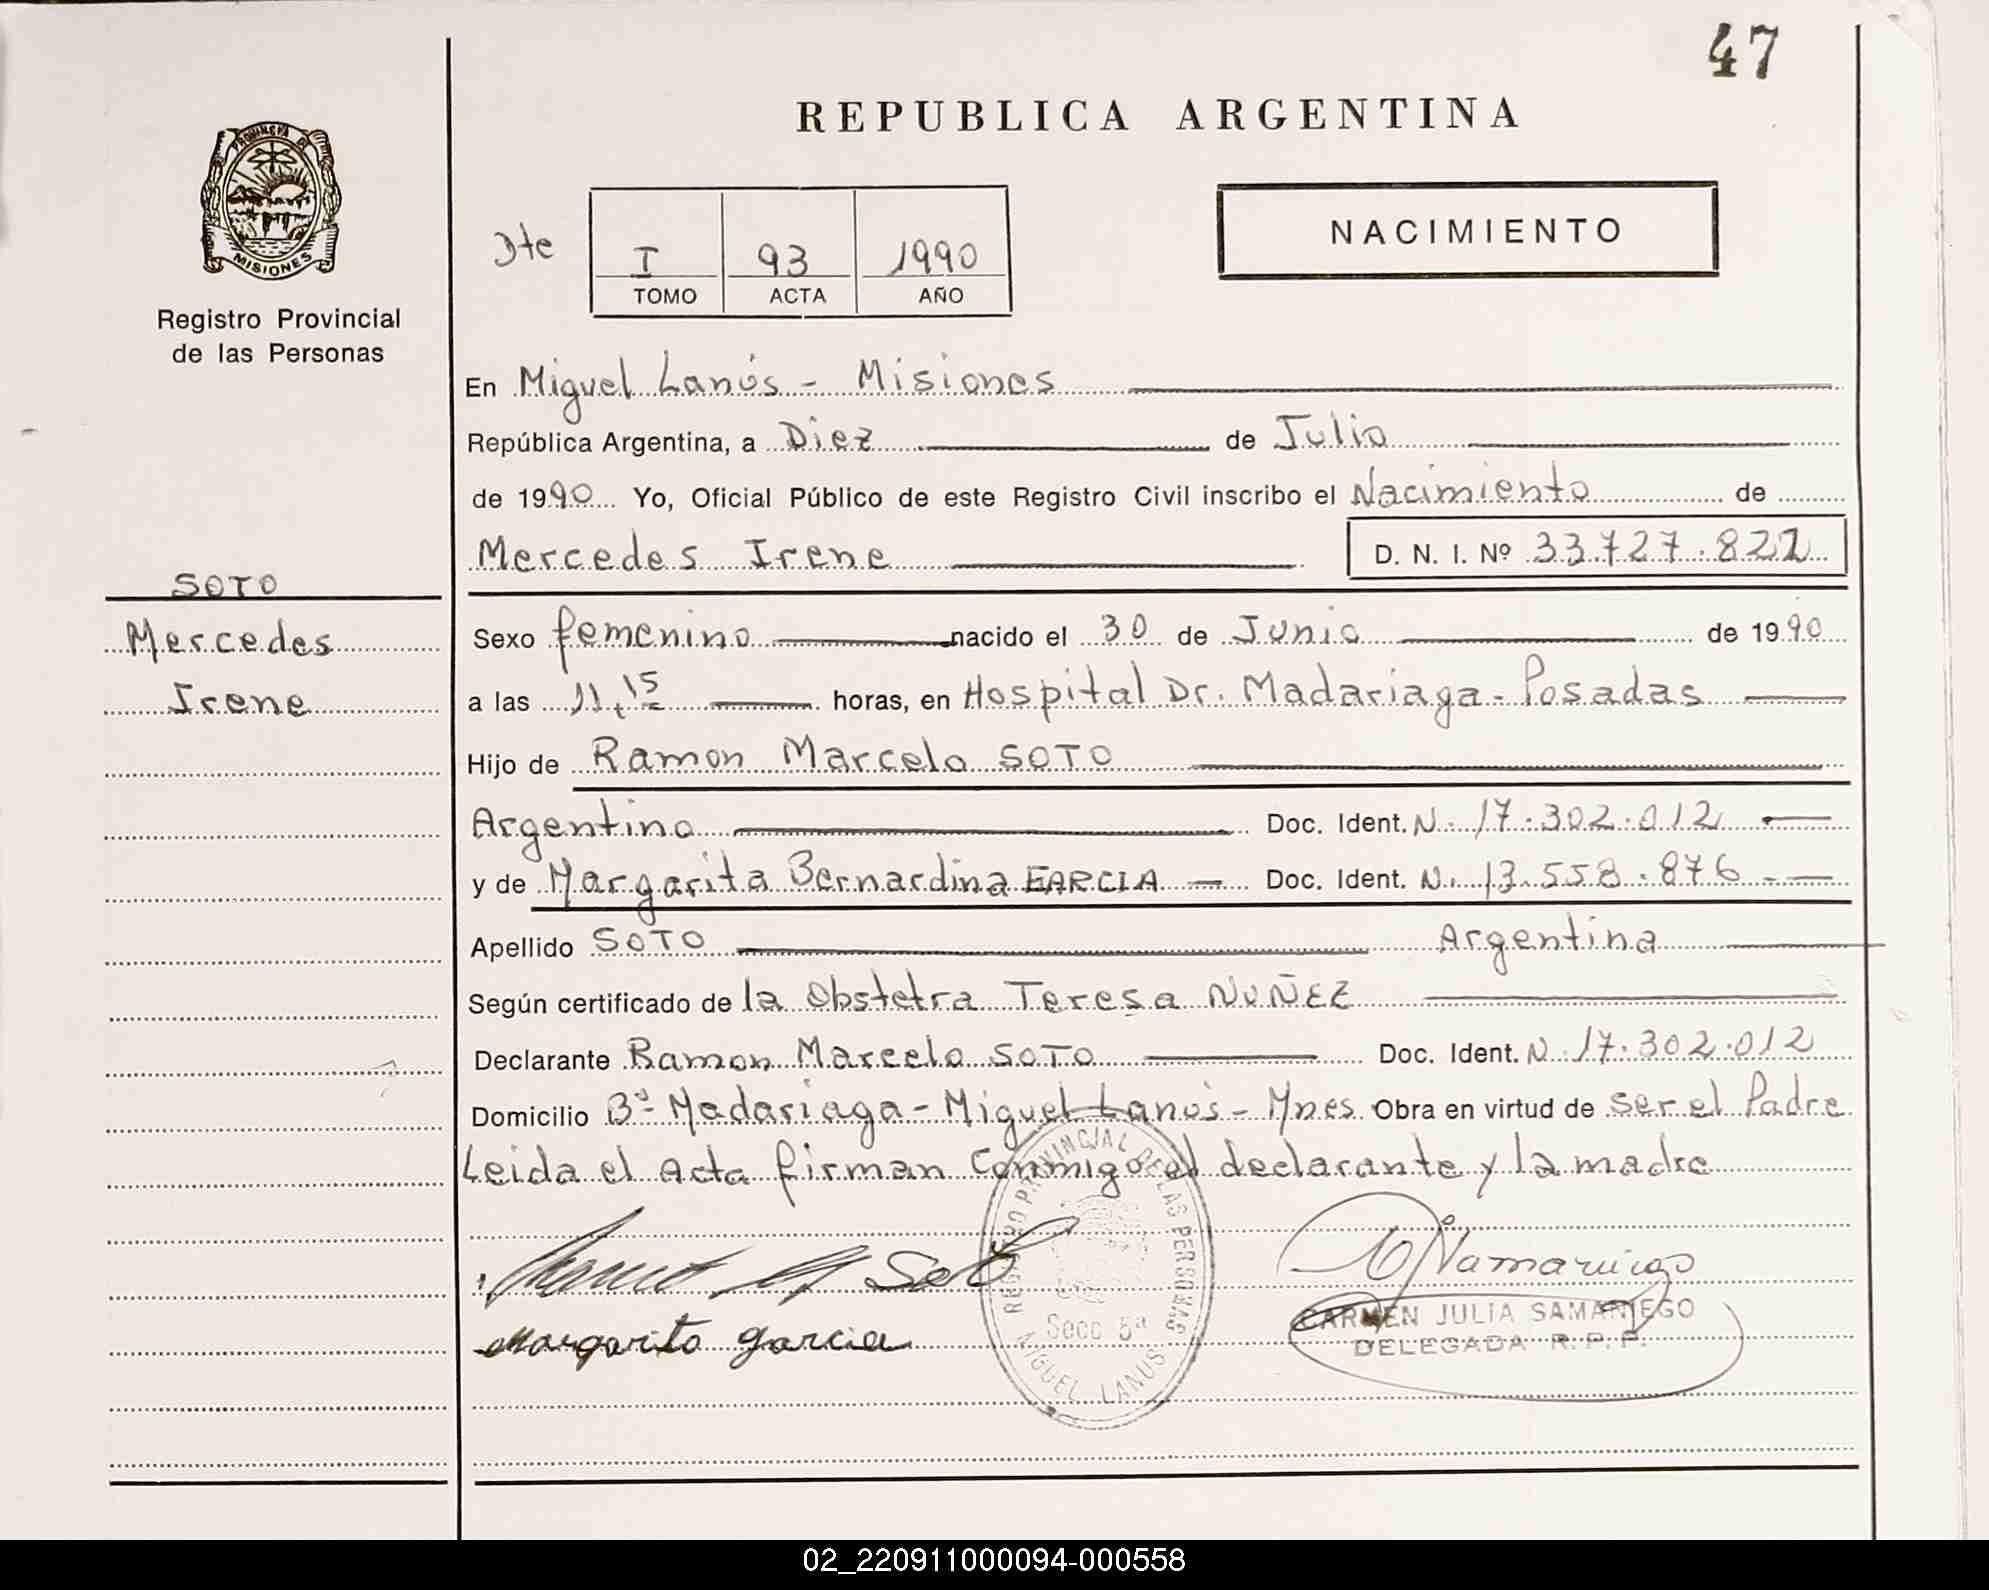 47
REPUBLICA ARGENTINA
PROVINCIA DE
MISIONES
Registro Provincial
de las Personas
Dte
I 93 1990
TOMO ACTA AÑO
NACIMIENTO
En Miguel Lanús - Misiones
República Argentina, a Diez de Julio
de 1990 Yo, Oficial Público de este Registro Civil inscribo el Nacimiento de
Mercedes Irene D. N. I. Nº 33.727.822
SOTO
Mercedes
Irene
Sexo femenino nacido el 30 de Junio de 1990
a las 11,15 horas, en Hospital Dr. Madariaga - Posadas
Hijo de Ramon Marcelo SOTO
Argentino Doc. Ident. N. 17.302.012
y de Margarita Bernardina GARCIA Doc. Ident. N. 13.558.876
Apellido SOTO Argentina
Según certificado de la Obstetra Teresa NUÑEZ
Declarante Ramon Marcelo SOTO Doc. Ident. N. 17.302.012
Domicilio Bº Madariaga - Miguel Lanús - Mnes. Obra en virtud de ser el Padre
Leida el Acta firman conmigo el declarante y la madre
REGISTRO PROVINCIAL DE LAS PERSONAS
Secc 5ª
MIGUEL LANUS
Soto
Margarita Garcia
CARMEN JULIA SAMANIEGO
DELEGADA R.P.P.
02_220911000094-000558